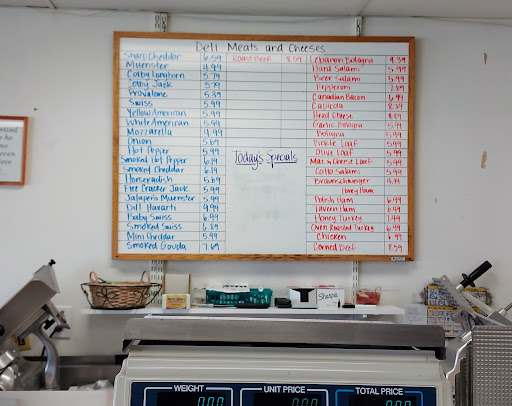 Deli Meats and Cheeses
Sharp Cheddar 6.59
Muenster 4.99
Colby Longhorn 5.79
Colby Jack 5.79
Provalone 5.39
Swiss 5.99
Yellow American 5.99
White American 5.99
Mozzarella 4.99
Onion 5.69
Hot Pepper 5.99
Smoked Hot Pepper 6.19
Smoked Cheddar 6.19
Horseradish 5.69
Fire Cracker Jack 5.99
Jalapeno Muenster 5.99
Dill Havarti 9.99
Baby Swiss 6.99
Smoked Swiss 6.89
Mini Cheddar 5.99
Smoked Gouda 7.69
Roast Beef 8.59
Today's Specials
Lebanon Bologna 4.39
Hard Salami 5.99
Beer Salami 5.99
Pepperoni
Canadian Bacon 6.99
Capicola 8.59
Head Cheese
Garlic Bologna 5.99
Bologna 5.99
Pickle Loaf 5.99
Olive Loaf 5.99
Mac & Cheese Loaf 5.99
Cotto Salami 5.99
Braunschweiger 4.19
Honey Ham
Polish Ham 6.99
Tavern Ham 6.49
Honey Turkey 7.49
Oven Roasted Turkey 6.99
Chicken 6.99
Corned Beef 8.59
Sharpie
WEIGHT UNIT PRICE TOTAL PRICE
0.00 0.00 0.00